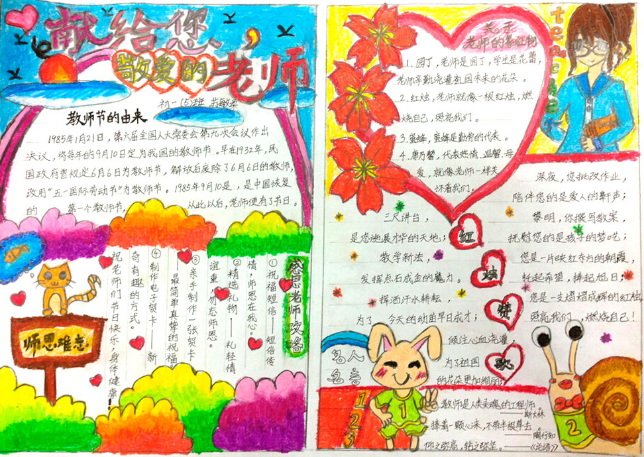 献给您，
敬爱的老师
初一15班
教师节的由来
1985年1月21日，第六届全国人大常委会第九次会议作出
决议，将每年的9月10日定为我国的教师节。早在1932年，民
国政府曾规定6月6日为教师节，解放后废除了6月6日的教师节，
改用"五一国际劳动节"为教师节。1985年9月10是，是中国恢复
的 第一个教师节， 从此以后，老师便有了节日。
感恩老师攻略
①祝福短信——短信传
情，师恩在我心。
②精选礼物——礼轻情
谊重
③亲手制作一张贺卡
——最简单真挚的祝福
④制作电子贺卡——新
奇有趣的方式。
祝老师们节日快乐，身体健康！
师恩难忘
老师的象征物
1、园丁，老师是园丁，学生是花蕾，
老师辛勤浇灌祖国未来的花朵。
2、红烛，老师就像一根红烛，燃
烧自己，照亮我们。
3、蜜蜂，蜜蜂是勤劳的代表。
4、康乃馨，代表热情、温馨、母
爱，就像老师一样关
怀着我们。
teacher
三尺讲台，
是您施展才华的天地；
教学新法，
发挥点石成金的魔力。
挥洒汗水耕耘，
为了 今天的幼苗早日成才；
倾注心血浇灌，
为了祖国
的花朵更加
红
烛
赞
歌
深夜，您批改作业，
陪伴您的是爱人的鼾声；
黎明，你撰写教案，
抚慰您的是孩子的梦呓；
您是一片映红寺内的朝霞，
托起希望，捧起旭日；
您是一支熠熠成辉的红烛
照亮我们，燃烧自己！
名人
名言
1
2
3
教师是人类灵魂的工程师
——斯大林
捧着一颗心来，不带半根草去
——陶行知
仰之弥高，钻之弥坚。——《论语》
1
2